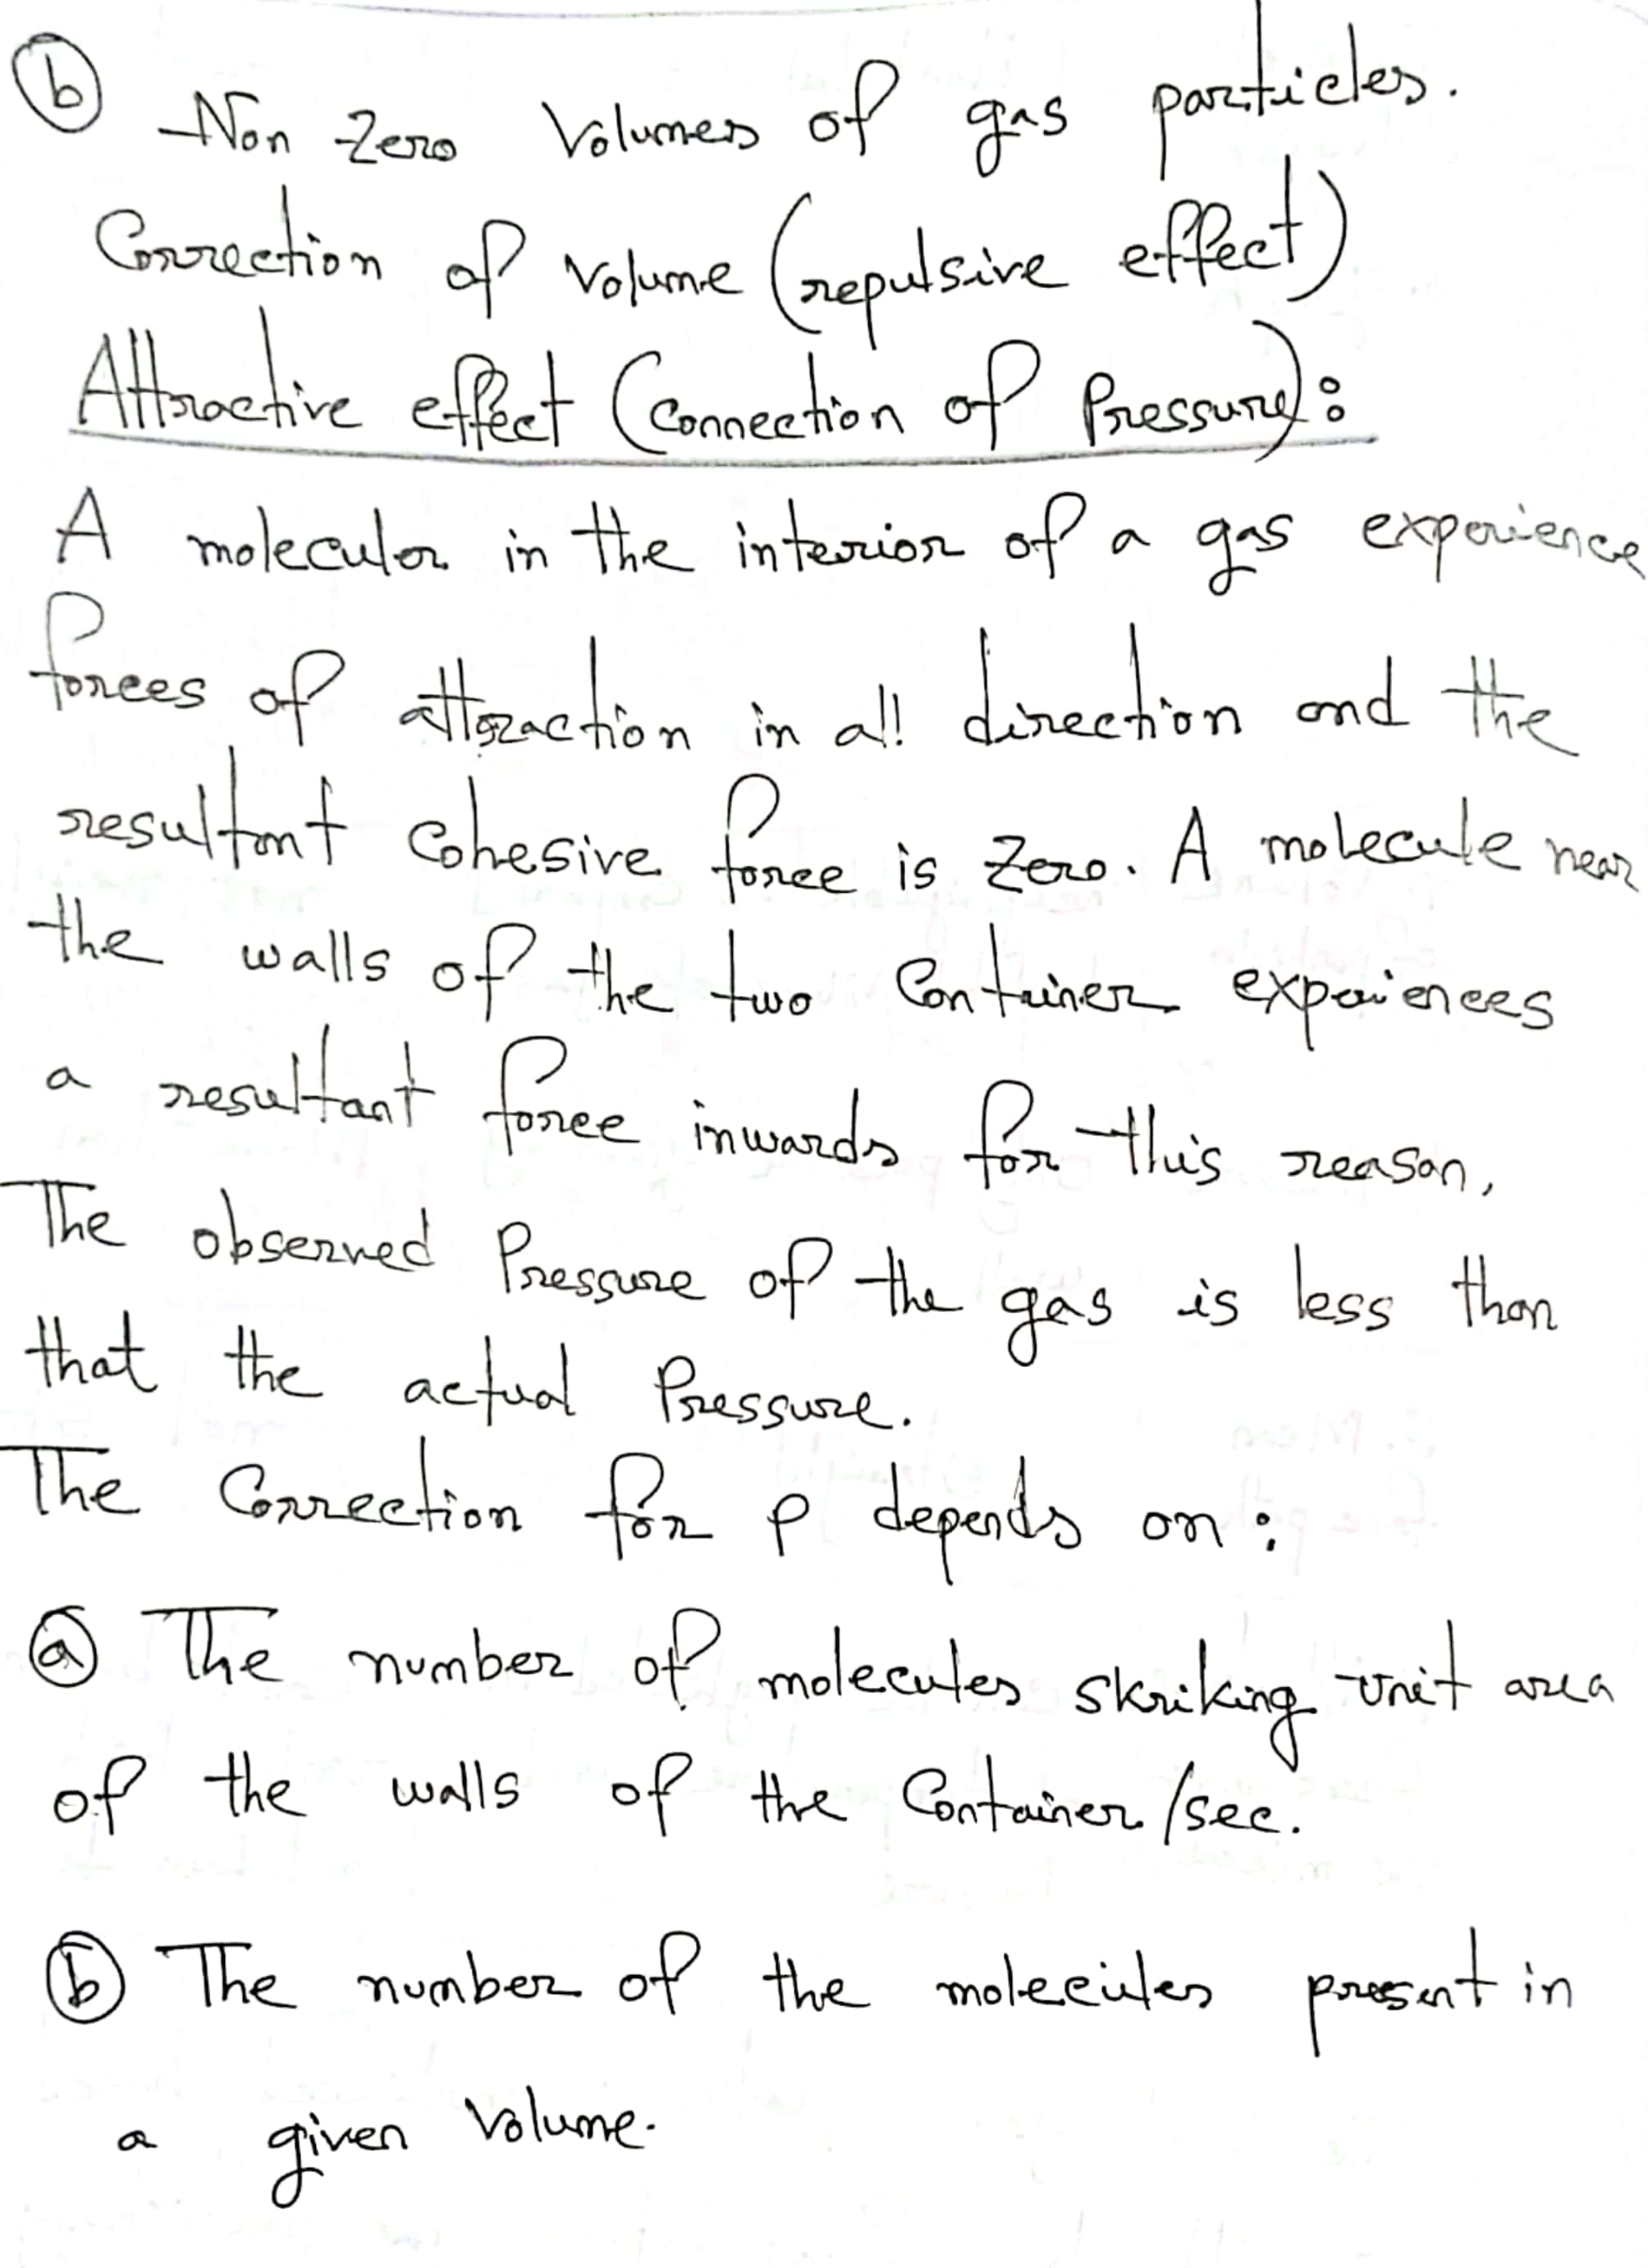 ⓑ Non Zero Volumes of gas particles.
Correction of Volume (repulsive effect)
Attractive effect (Connection of Pressure):
A moleculer in the interior of a gas experience
forces of attraction in all direction and the
resultant Cohesive force is Zero. A molecule near
the walls of the two Container experiences
a resultant force inwards for this reason,
The observed Pressure of the gas is less than
that the actual Pressure.
The Correction for P depends on:
ⓐ The number of molecules skriking unit area
of the walls of the Container/sec.
ⓑ The number of the molecules present in
a given Volume.